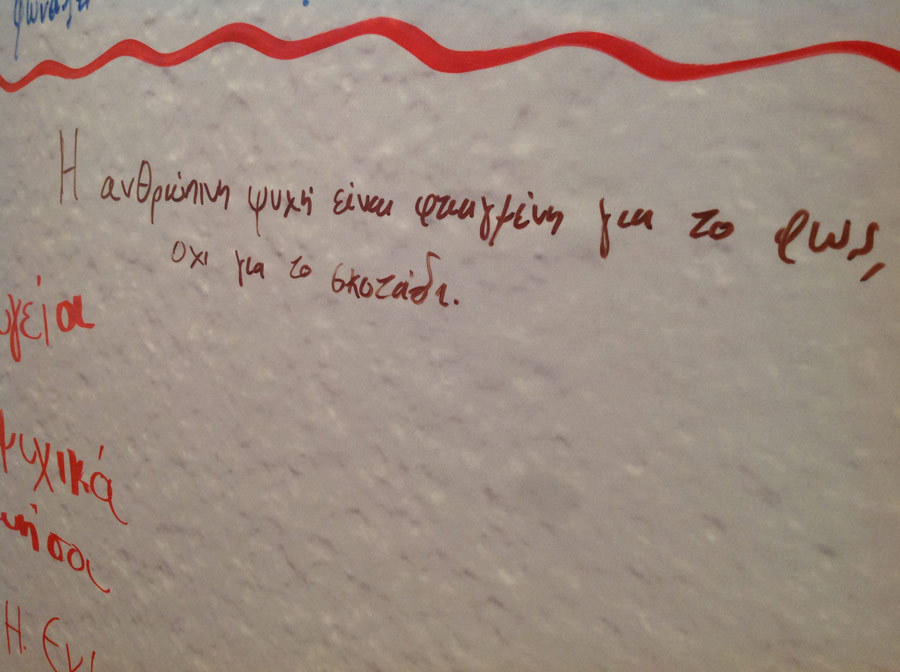 Η ανθρώπινη ψυχή είναι φτιαγμένη για το φως,
οχι για το σκοτάδι.
υγεία
ψυχικά
Η. Ενι